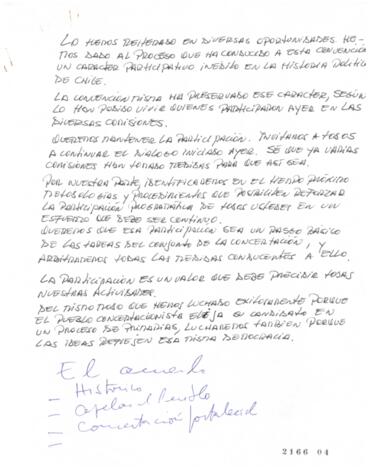 LO HEMOS REITERADO EN DIVERSAS OPORTUNIDADES. HE-
MOS DADO AL PROCESO QUE HA CONDUCIDO A ESTA CONVENCION
UN CARACTER PARTICIPATIVO INEDITO EN LA HISTORIA POLITICA
DE CHILE.
LA CONVENCION MISMA HA PRESERVADO ESE CARACTER, SEGUN
LO HAN PODIDO VIVIR QUIENES PARTICIPARON AYER EN LAS
DIVERSAS COMISIONES.
QUEREMOS MANTENER LA PARTICIPACION. INVITAMOS A TODOS
A CONTINUAR EL DIALOGO INICIADO AYER. SE QUE YA VARIAS
COMISIONES HAN TOMADO MEDIDAS PARA QUE ASI SEA.
POR NUESTRA PARTE, IDENTIFICAREMOS EN EL TIEMPO PROXIMO
METODOLOGIAS Y PROCEDIMIENTOS QUE POSIBILITEN REFORZAR
LA PARTICIPACION PROGRAMATICA DE TODOS USTEDES EN UN
ESFUERZO QUE DEBE SER CONTINUO.
QUEREMOS QUE ESA PARTICIPACION SEA UN RASGO BASICO
DE LAS TAREAS DEL CONJUNTO DE LA CONCERTACION, Y
ARBITRAREMOS TODAS LAS MEDIDAS CONDUCENTES A ELLO.
LA PARTICIPACION ES UN VALOR QUE DEBE PRECIDIR TODAS
NUESTRAS ACTIVIDADES.
DEL MISMO MODO QUE HEMOS LUCHADO EXITOSAMENTE PORQUE
EL PUEBLO CONCERTACIONISTA ELIJA SU CANDIDATO EN
UN PROCESO DE PRIMARIAS, LUCHAREMOS TAMBIEN PORQUE
LAS IDEAS REFLEJEN ESA MISMA DEMOCRACIA.
El acuerdo
— Histórico
— Apelar al Pueblo
— Concertación fortalecid
—
2166 04